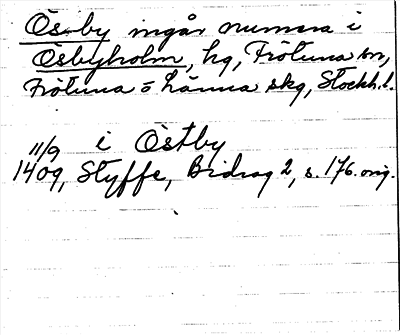 Ösby ingår numera i
Ösbyholm, hg, Frötuna sn,
Frötuna o Länna skg, Stockh.l.
11/9 i Östby
1409, Styffe, Bidrag 2, s. 176. orig.